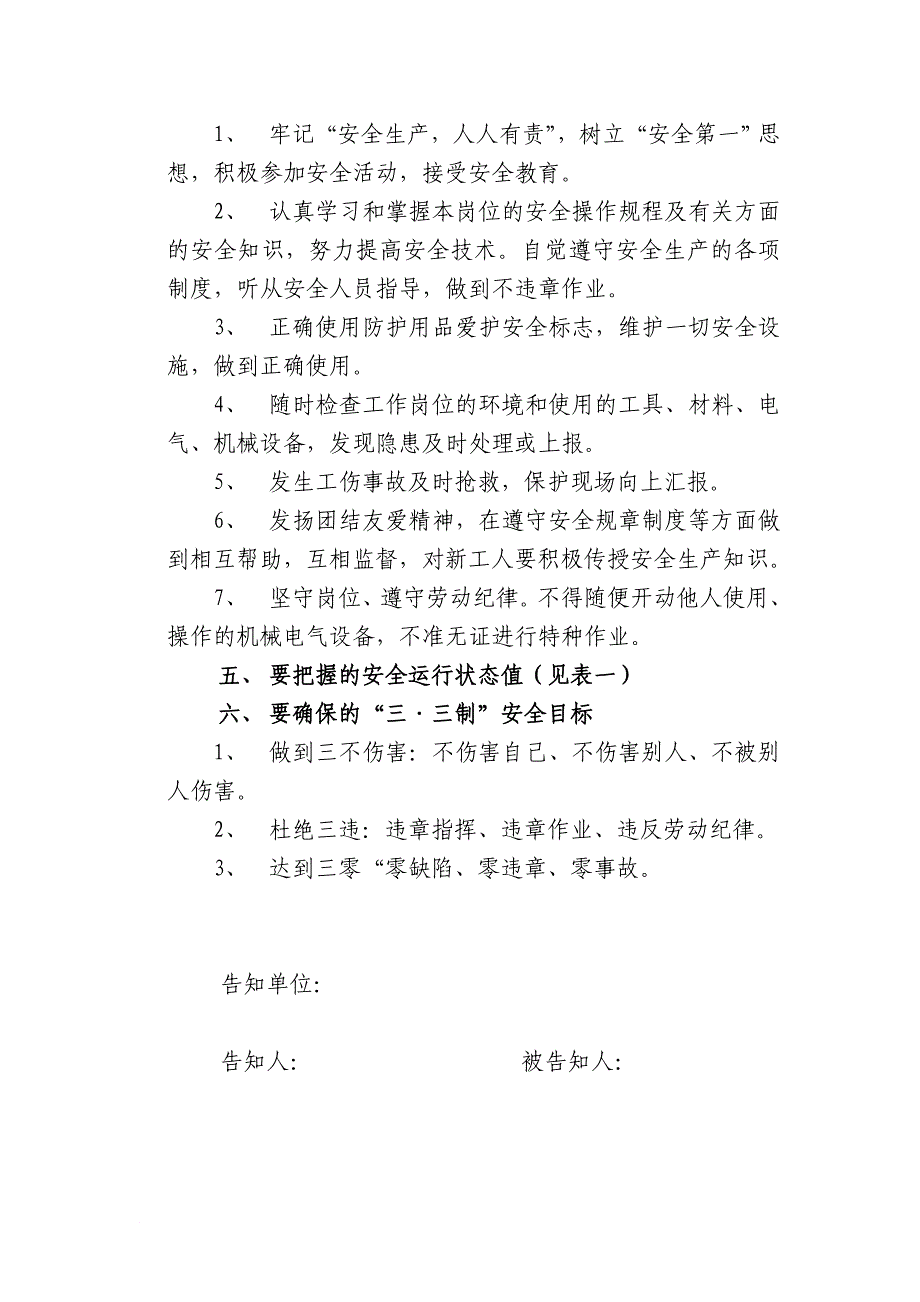 1、 牢记“安全生产，人人有责”，树立“安全第一”思
想，积极参加安全活动，接受安全教育。
2、 认真学习和掌握本岗位的安全操作规程及有关方面
的安全知识，努力提高安全技术。自觉遵守安全生产的各项
制度，听从安全人员指导，做到不违章作业。
3、 正确使用防护用品爱护安全标志，维护一切安全设
施，做到正确使用。
4、 随时检查工作岗位的环境和使用的工具、材料、电
气、机械设备，发现隐患及时处理或上报。
5、 发生工伤事故及时抢救，保护现场向上汇报。
6、 发扬团结友爱精神，在遵守安全规章制度等方面做
到相互帮助，互相监督，对新工人要积极传授安全生产知识。
7、 坚守岗位、遵守劳动纪律。不得随便开动他人使用、
操作的机械电气设备，不准无证进行特种作业。
五、 要把握的安全运行状态值（见表一）
六、 要确保的“三·三制”安全目标
1、 做到三不伤害：不伤害自己、不伤害别人、不被别
人伤害。
2、 杜绝三违：违章指挥、违章作业、违反劳动纪律。
3、 达到三零“零缺陷、零违章、零事故。
告知单位：
告知人： 被告知人：